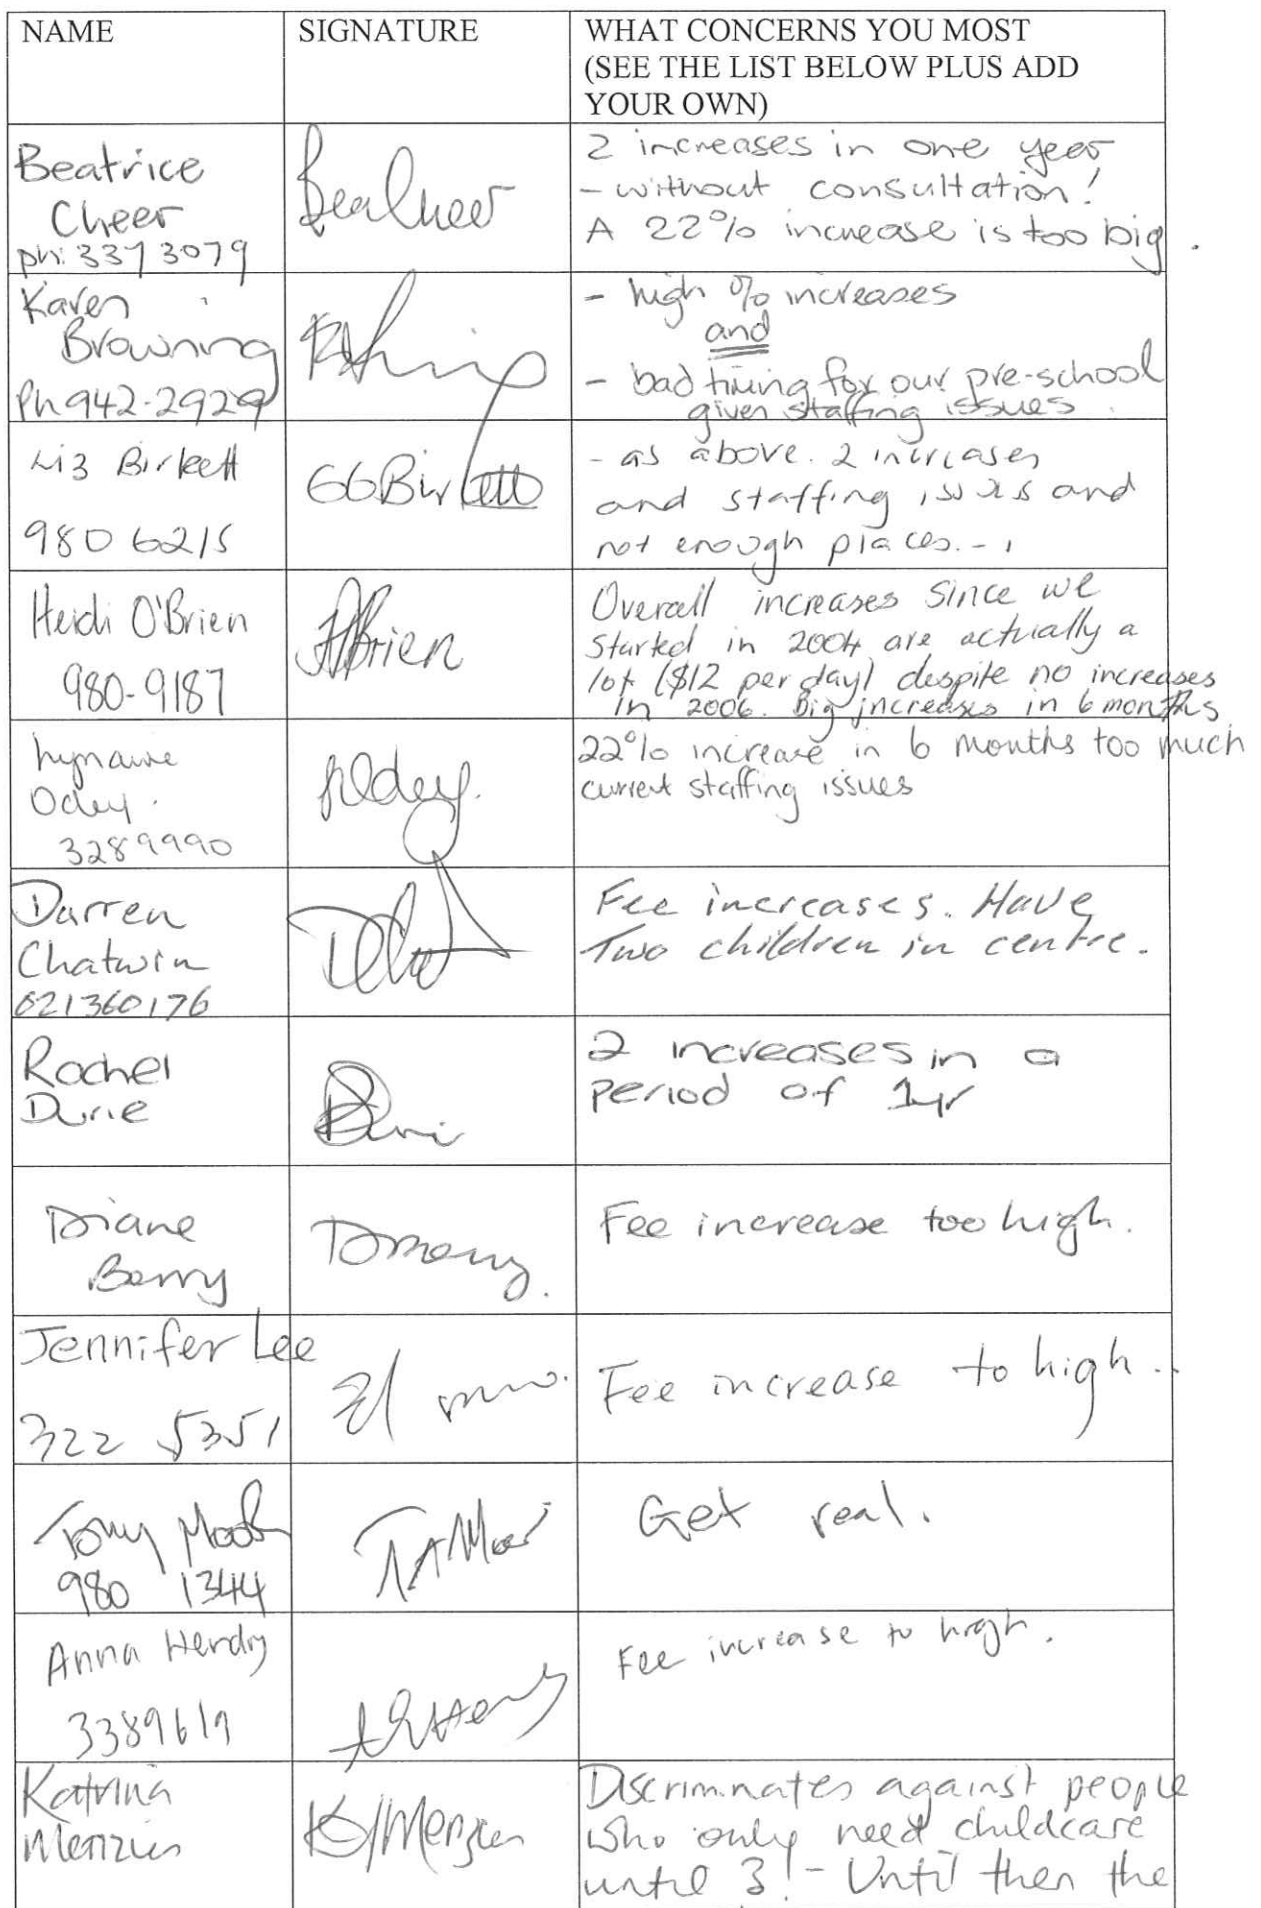 NAME
SIGNATURE
WHAT CONCERNS YOU MOST
(SEE THE LIST BELOW PLUS ADD
YOUR OWN)
Beatrice
Cheer
ph: 337 3079
2 increases in one year
- without consultation!
A 22% increase is too big.
Karen
Browning
Ph 942-2929
- high % increases
and
- bad timing for our pre-school
given staffing issues
Liz Birkett
980 6215
GGBirkett
- as above. 2 increases
and staffing issues and
not enough places.
Heidi O'Brien
980-9187
O'Brien
Overall increases since we
started in 2004 are actually a
lot ($12 per day) despite no increases
in 2006. Big increases in 6 months
3289990
22% increase in 6 months too much
current staffing issues
Darren
Chatwin
021360176
Fee increases. Have
Two children in centre.
Rachel
Durie
2 increases in a
period of 1yr
Diane
Berry
Fee increase too high.
Jennifer Lee
322 5351
Fee increase to high.
Tony
980 1344
Get real.
Anna
3389619
Fee increase to high.
Katrina
Menzies
K Menzies
Discriminates against people
who only need childcare
until 3! - Until then the